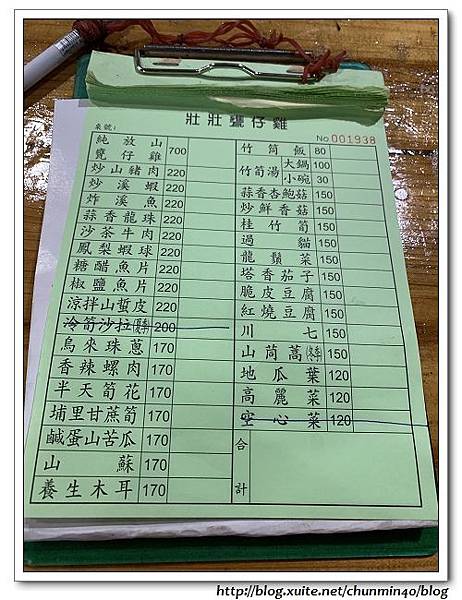 壯壯甕仔雞
桌號:
No 001938
純放山甕仔雞 700
炒山豬肉 220
炒溪蝦 220
炸溪魚 220
蒜香龍珠 220
沙茶牛肉 220
鳳梨蝦球 220
糖醋魚片 220
椒鹽魚片 220
涼拌山蜇皮 220
冷筍沙拉 200
烏來珠蔥 170
香辣螺肉 170
半天筍花 170
埔里甘蔗筍 170
鹹蛋山苦瓜 170
山蘇 170
養生木耳 170
竹筒飯 80
竹筍湯 大鍋 100
小碗 30
蒜香杏鮑菇 150
炒鮮香菇 150
桂竹筍 150
過貓 150
龍鬚菜 150
塔香茄子 150
脆皮豆腐 150
紅燒豆腐 150
川七 150
山茼蒿 150
地瓜葉 120
高麗菜 120
空心菜 120
合計
http://blog.xuite.net/chunmin40/blog